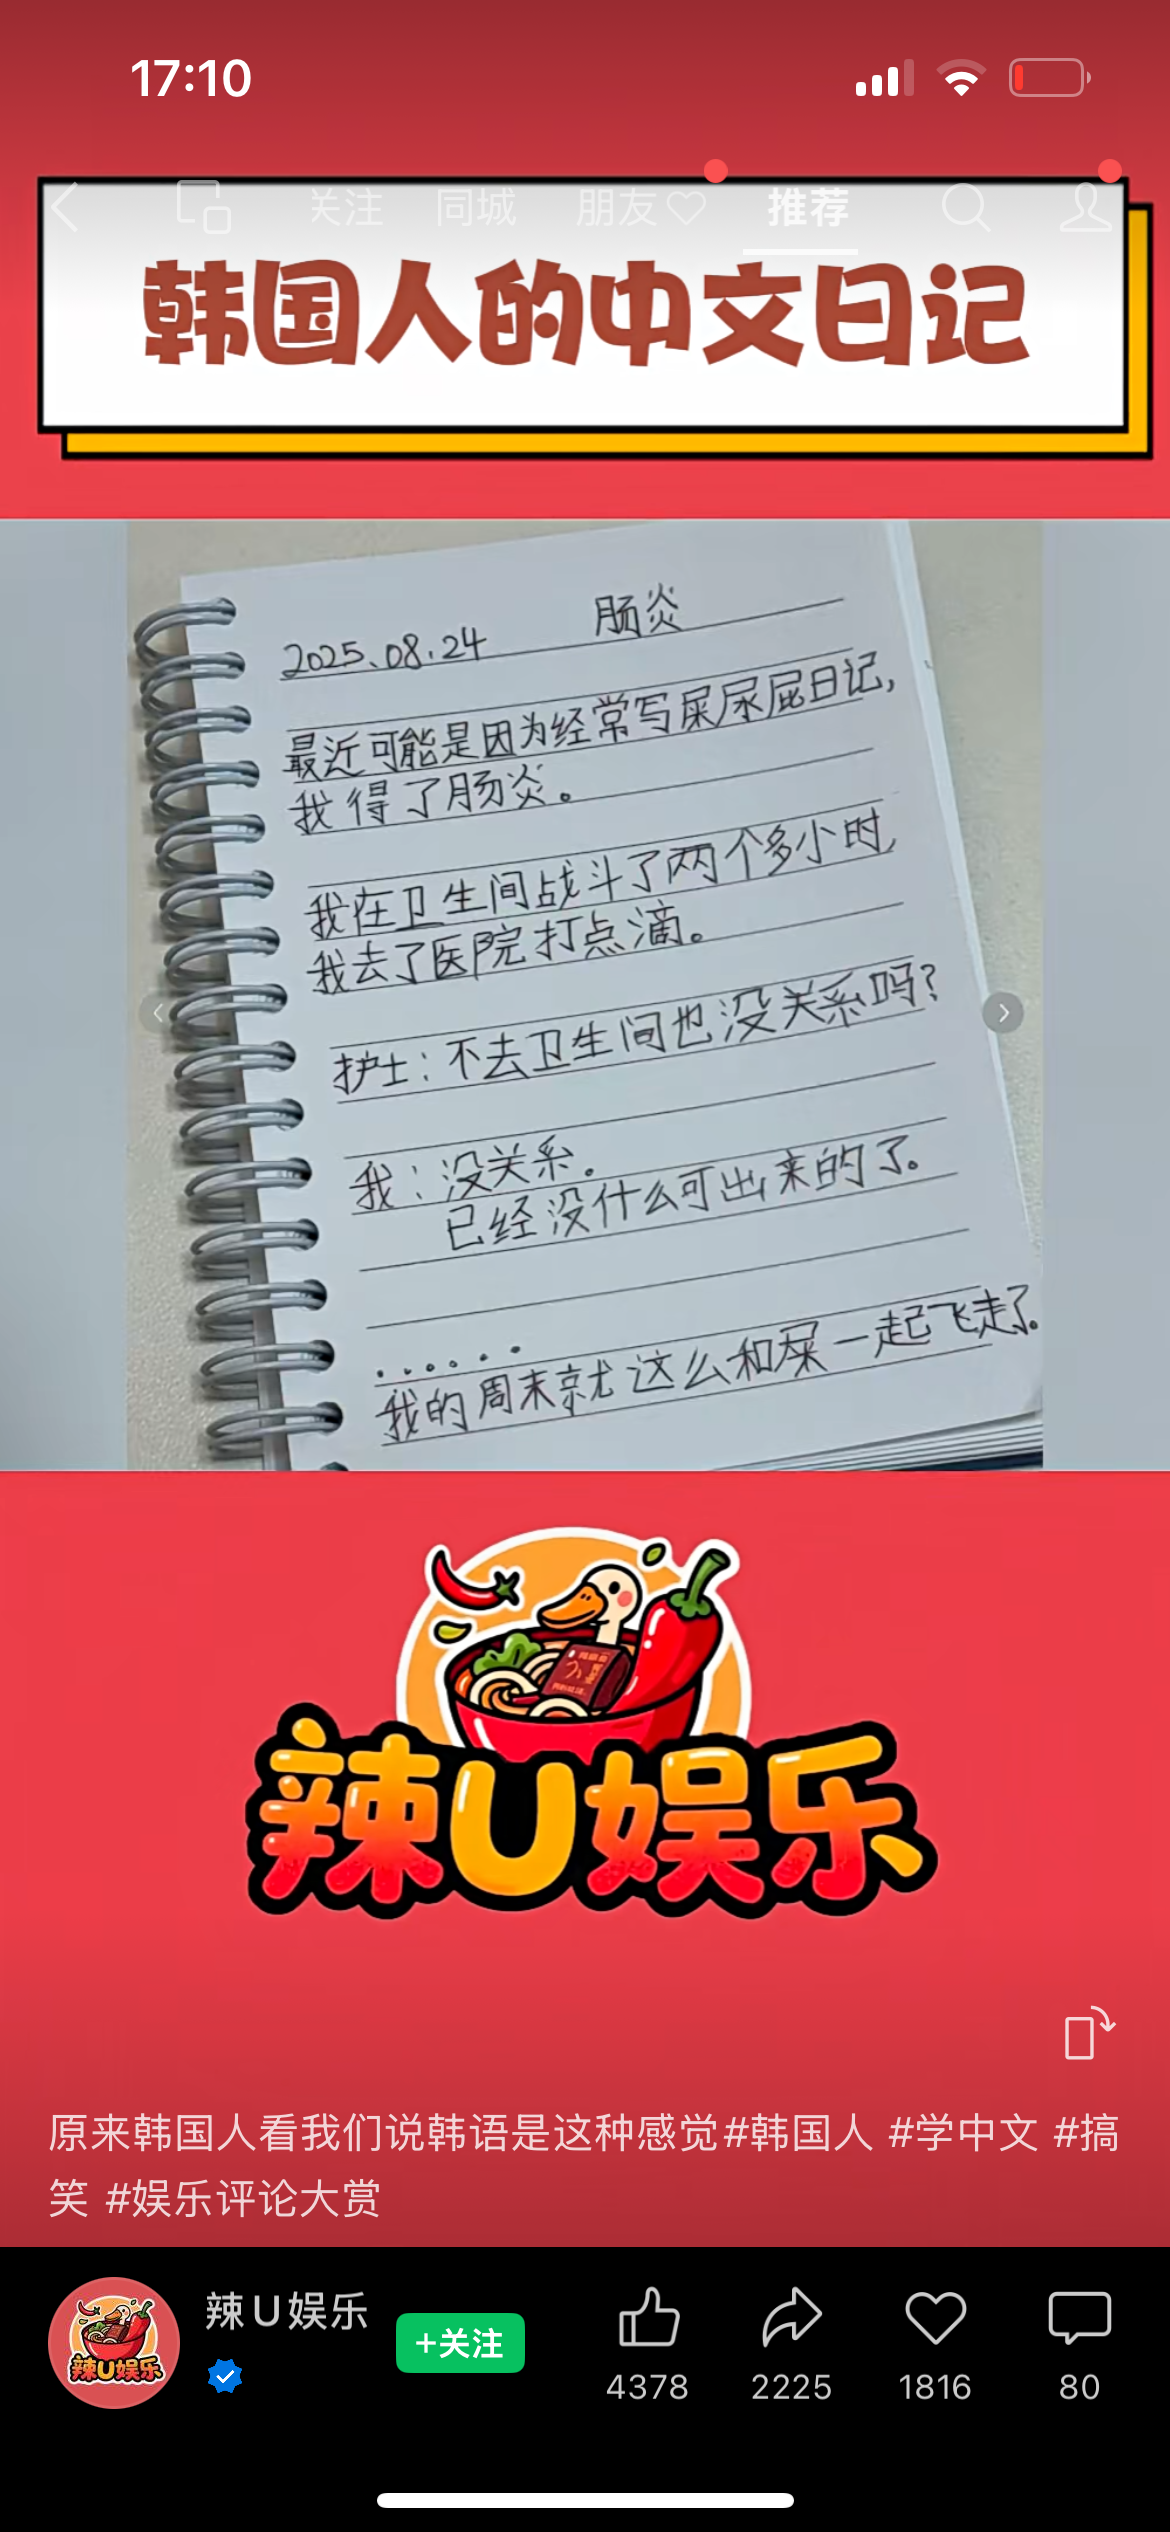 17:10
关注 同城 朋友 推荐
韩国人的中文日记
2025.08.24 肠炎
最近可能是因为经常写屎尿屁日记,
我得了肠炎。
我在卫生间战斗了两个多小时,
我去了医院打点滴。
护士:不去卫生间也没关系吗?
我:没关系.
已经没什么可出来的了。
......
我的周末就这么和屎一起飞走了。
辣U娱乐
原来韩国人看我们说韩语是这种感觉#韩国人 #学中文 #搞
笑 #娱乐评论大赏
辣U娱乐
辣U娱乐
+关注
4378 2225 1816 80